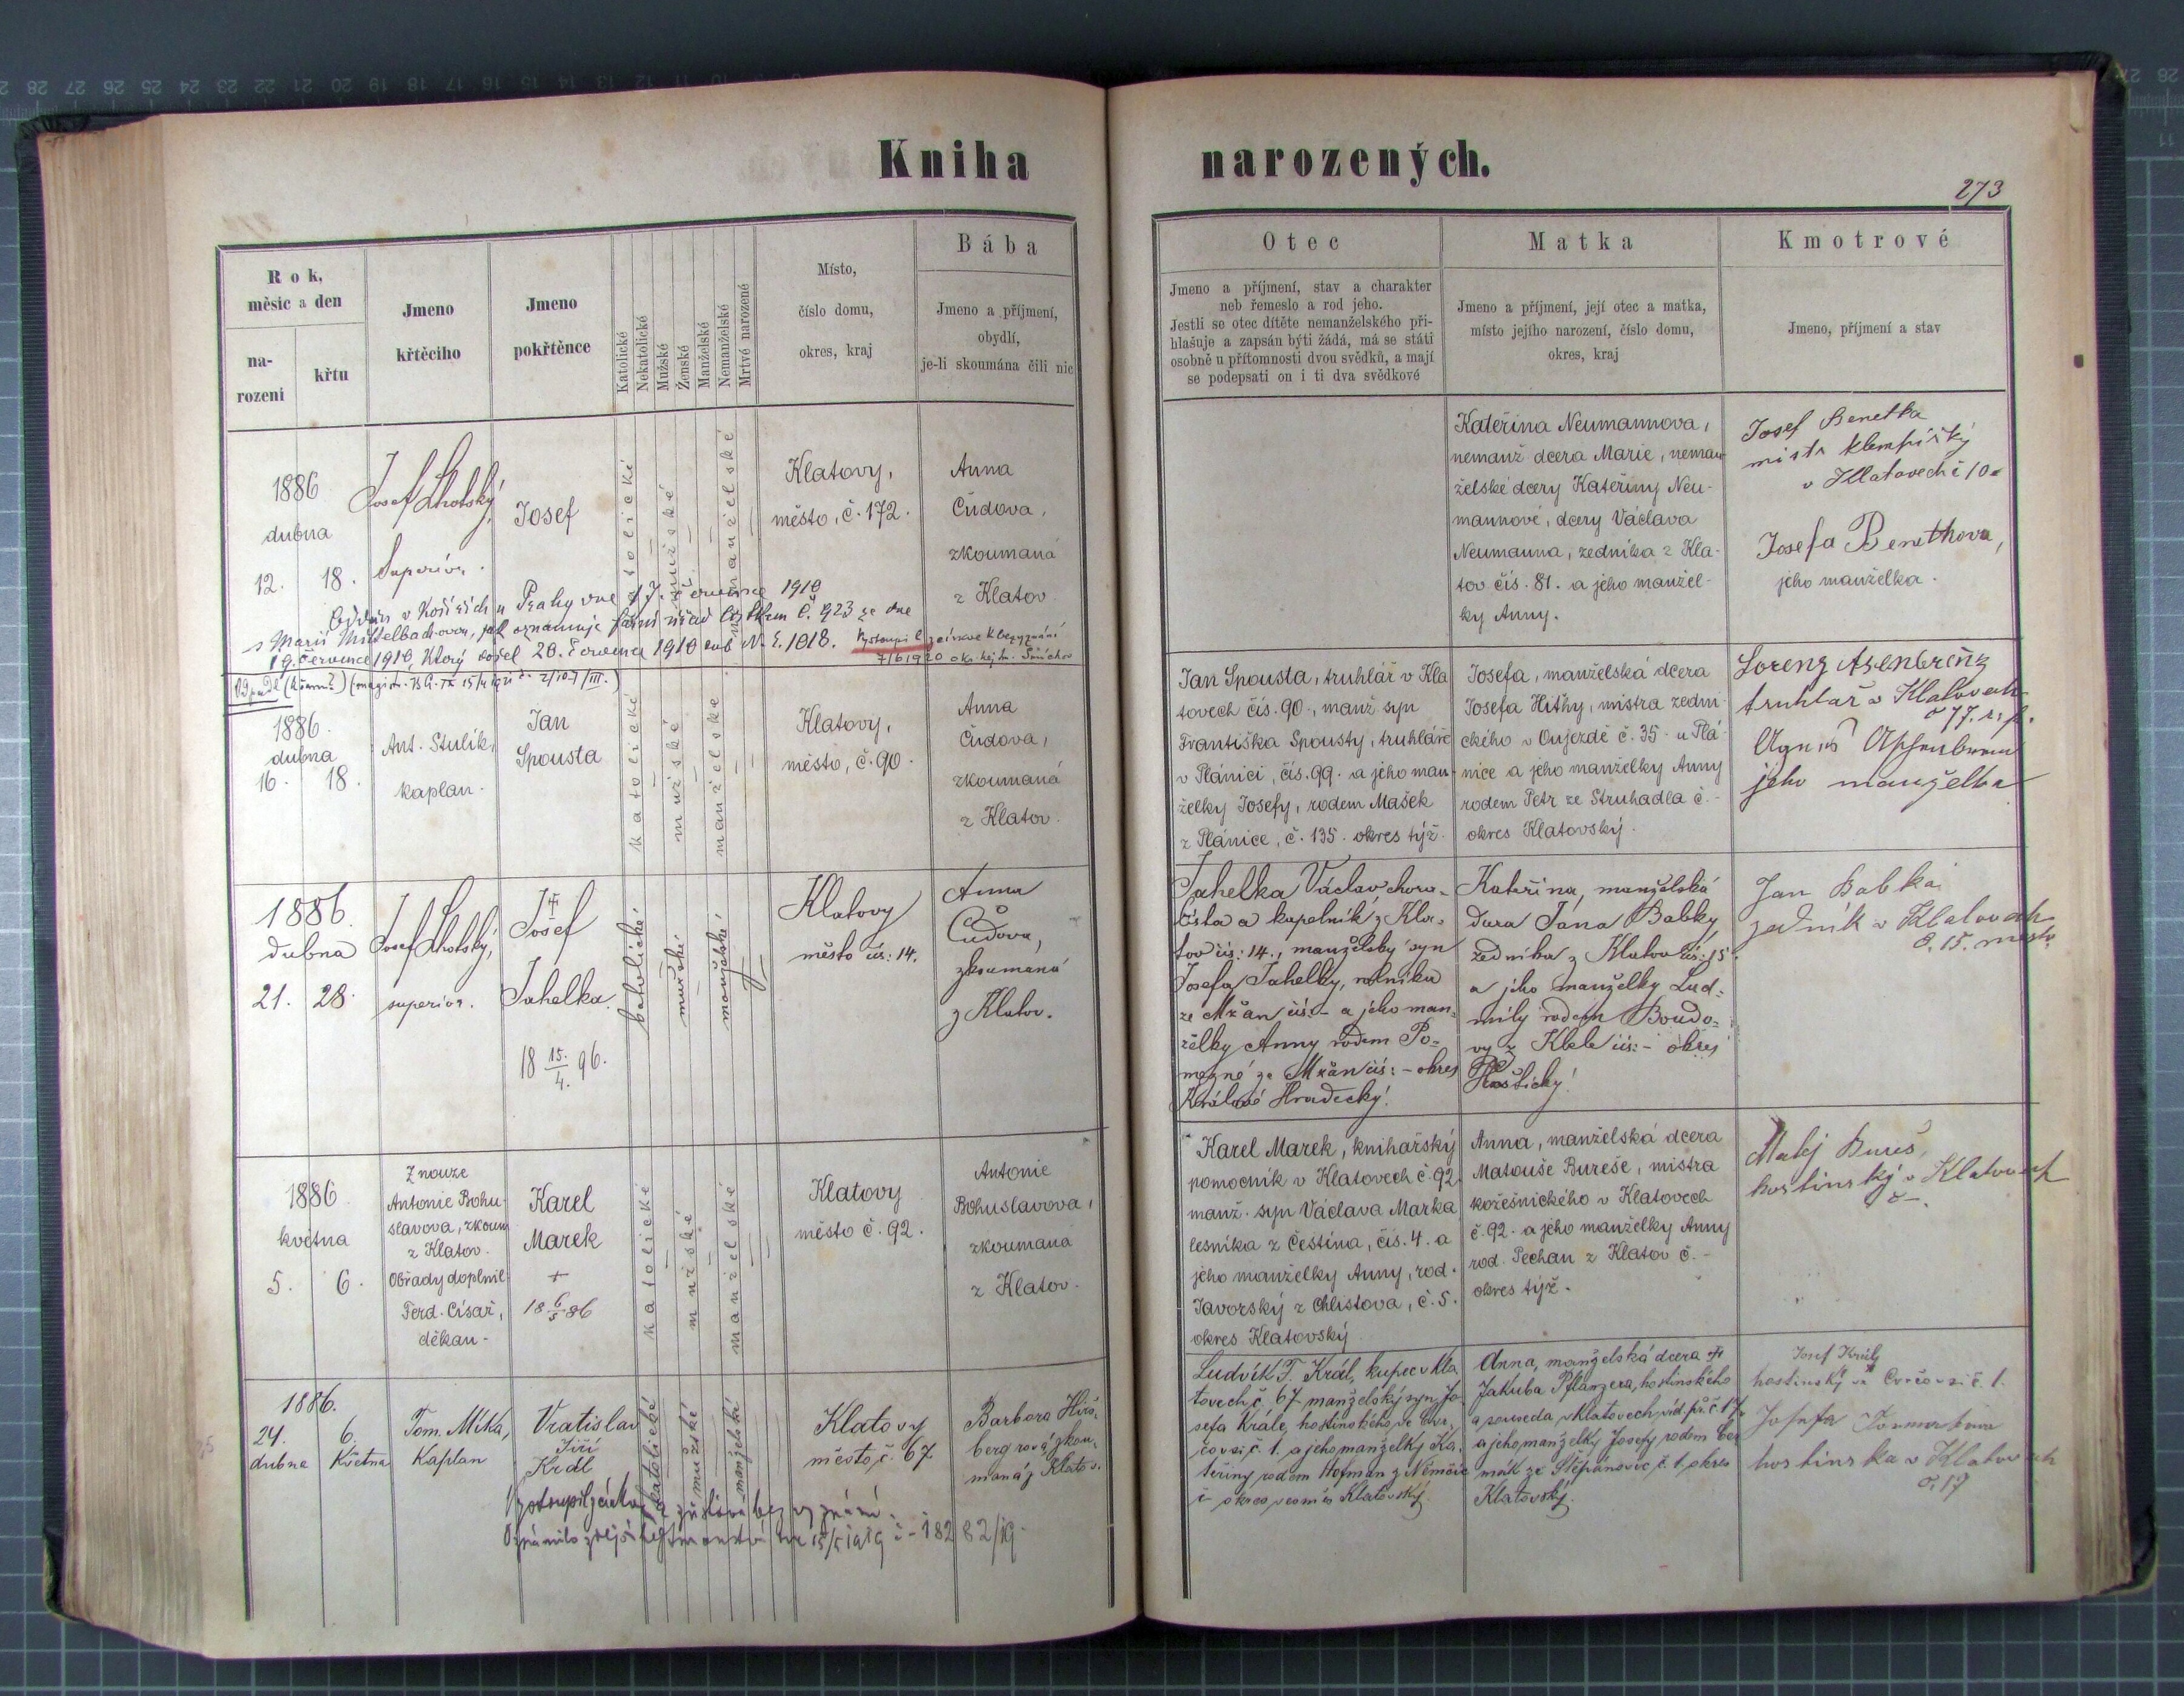 Kniha narozených.
273
Rok,
měsíc a den
na-
rození
křtu
Jmeno
křtěcího
Jmeno
pokřtěnce
Katolické
Nekatolické
Mužské
Ženské
Manželské
Nemanželské
Mrtvé narozené
Místo,
číslo domu,
okres, kraj
Bába
Jmeno a příjmení,
obydlí,
je-li skoumána čili nic
Otec
Jmeno a příjmení, stav a charakter
neb řemeslo a rod jeho.
Jestli se otec dítěte nemanželského při-
hlašuje a zapsán býti žádá, má se státi
osobně u přítomnosti dvou svědků, a mají
se podepsati on i ti dva svědkové
Matka
Jmeno a příjmení, její otec a matka,
místo jejího narození, číslo domu,
okres, kraj
Kmotrové
Jmeno, příjmení a stav
1886
dubna
12. 18.
Josef Lhotský,
Superior.
Josef
katolické
mužské
nemanželské
Klatovy,
město, č. 172.
Anna
Čudova,
zkoumaná
z Klatov
Kateřina Neumannova,
nemanž dcera Marie, neman
želské dcery Kateřiny Neu-
mannové, dcery Václava
Neumanna, zedníka z Kla-
tov čís. 81. a jeho manžel-
ky Anny.
Josef Benetka
mistr klempířský
v Klatovech č 10
Josefa Benethova,
jeho manželka.
Oddán v Košířích u Prahy dne 17. července 1910
s Marií Mittelbachovou, jak oznamuje farní úřad lístkem č. 923 ze dne
19. července 1910, který došel 20. července 1910 sub N. E. 1018. Vystoupil z církve k bezvyznání
7/6 1920 okr. hejtm. Smíchov
1886.
dubna
16. 18.
Ant. Stulík,
kaplan.
Jan
Spousta
katolické
mužské
manželské
Klatovy,
město, č. 90.
Anna
Čudova,
zkoumaná
z Klatov.
Jan Spousta, truhlář v Kla
tovech čís. 90., manž syn
Františka Spousty, truhláře
v Plánici, čís. 99. a jeho man-
želky Josefy, rodem Mašek
z Plánice, č. 135. okres týž.
Josefa, manželská dcera
Josefa Hithy, mistra zedni-
ckého v Oujezdě č. 35. u Plá-
nice a jeho manželky Anny
rodem Petr ze Struhadla č. -
okres Klatovský.
Lorenz
truhlař v Klatovech
jeho manželka
1886.
dubna
21. 28.
Josef Lhotský,
superior.
Josef
Tahelka.
18 15./4. 96.
katolické
mužské
manželské
Klatovy
město čís: 14.
Anna
Čudova,
zkoumaná
z Klatov.
Tahelka Václav chora-
lista a kapelník z Kla-
tov čís: 14., manželský syn
Josefa Tahelky, rolníka
ze Mžan čís: - a jeho man-
želky Anny rodem Po-
mezné ze Mžan čís: - okres
Králové Hradecký.
Kateřina, manželská
dcera Jana Babky,
zedníka z Klatov čís: 15.
a jeho manželky Lud-
mily rodem Boudo-
vy z Kbele čís: - okres
Přeštický.
Jan Babka
zedník v Klatovech
č. 15. město
1886
května
5. 6.
Z nouze
Antonie Bohu-
slavova, zkoum
z Klatov.
Obřady doplnil
Ferd. Císař,
děkan.
Karel
Marek
+
18 6/5 86
katolické
mužské
manželské
Klatovy
město č. 92.
Antonie
Bohuslavova,
zkoumaná
z Klatov.
Karel Marek, knihařský
pomocník v Klatovech č. 92.
manž. syn Václava Marka
lesníka z Čestína, čís. 4. a
jeho manželky Anny, rod.
Javorský z Chlistova, č. 5.
okres Klatovský
Anna, manželská dcera
Matouše Bureše, mistra
kožešnického v Klatovech
č. 92. a jeho manželky Anny
rod. Pechan z Klatov č. -
okres týž.
Matěj Bureš,
hostinský v Klatovech
č -.
1886.
24. 6.
dubna Května
Tom. Mitka,
Kaplan
Vratislav
Jiří
Král
katolické
mužské
manželské
Klatovy
město, č. 67
Barbora Hirš-
bergrová, zkou-
maná z Klatov.
Ludvík F. Král, kupec v Kla
tovech, č. 67 manželský syn Jo-
sefa Krále, hostinského ve Cvr-
čovsi, č. 1. a jeho manželky Ka-
teřiny rodem Hofman z Němčic
Anna, manželská dcera
Jakuba Pflanzera, hostinského
a souseda v Klatovech, víd. př. č. 17.
a jeho manželky Josefy rodem Čer
mák ze Štěpánovic, č. 1. okres
Klatovský.
Josef Král,
hostinský ve Cvrčovsi č. 1.
Josefa
hostinska v Klatovech
č. 17
Vystoupil z církve a zůstává bez vyznání.